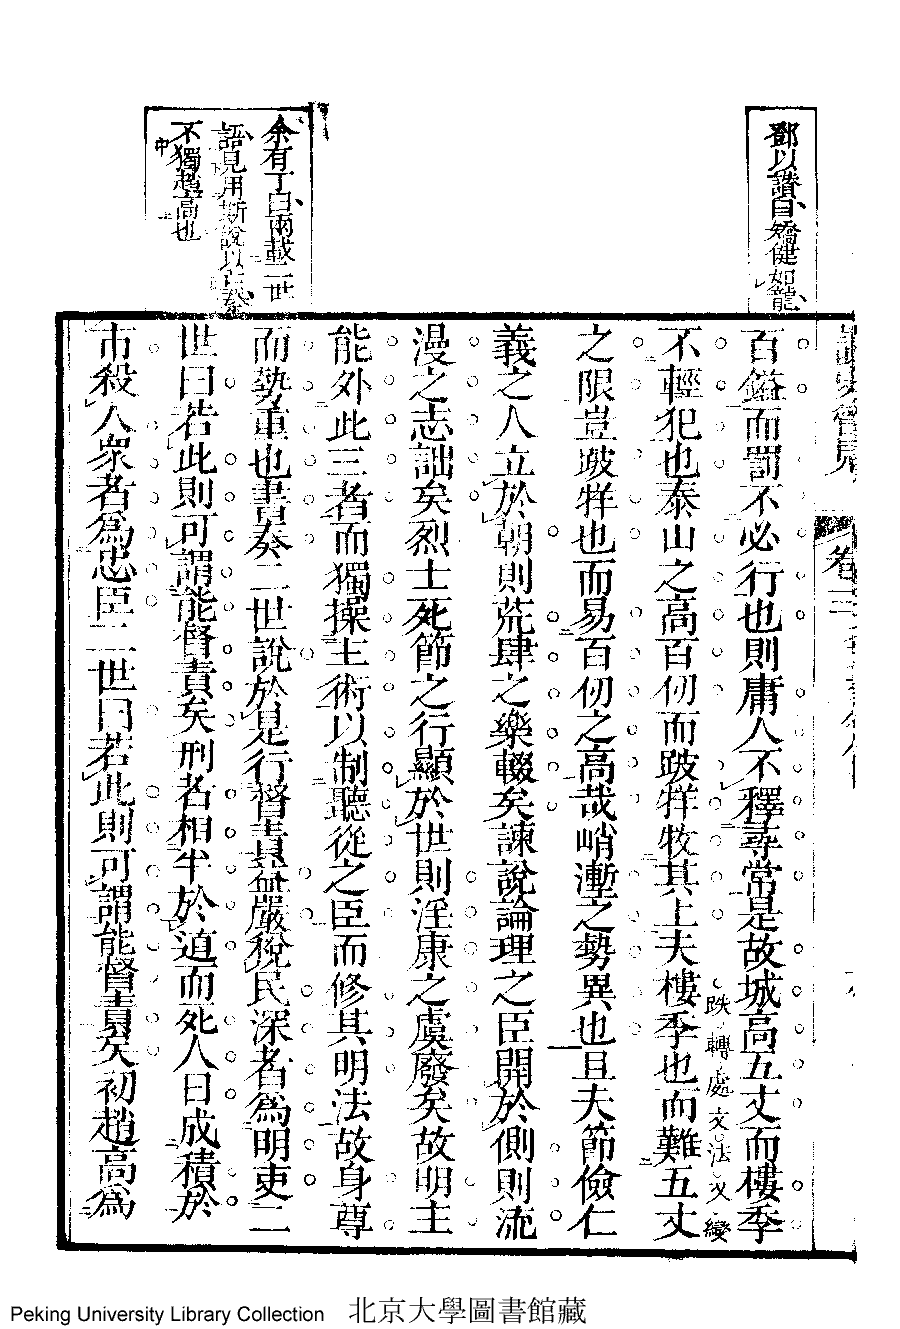 鄧以讚曰矯健如龍
余有丁曰兩載二世
語見用斯說以亡秦
不獨趙高也
卷三
百鎰而罰不必行也則庸人不釋尋常是故城高五丈而樓季
不輕犯也泰山之高百仞而跛牂牧其上夫樓季也而難五丈
跌轉處文法又變
之限豈跛牂也而易百仞之高哉峭漸之勢異也且夫節儉仁
義之人立於朝則荒肆之樂輟矣諫說論理之臣開於側則流
漫之志詘矣烈士死節之行顯於世則淫康之虞廢矣故明主
能外此三者而獨操主術以制聽從之臣而修其明法故身尊
而勢重也書奏二世說於是行督責益嚴稅民深者為明吏二
世曰若此則可謂能督責矣刑者相半於道而死人日成積於
市殺人衆者為忠臣二世曰若此則可謂能督責矣初趙高為
Peking University Library Collection 北京大學圖書館藏